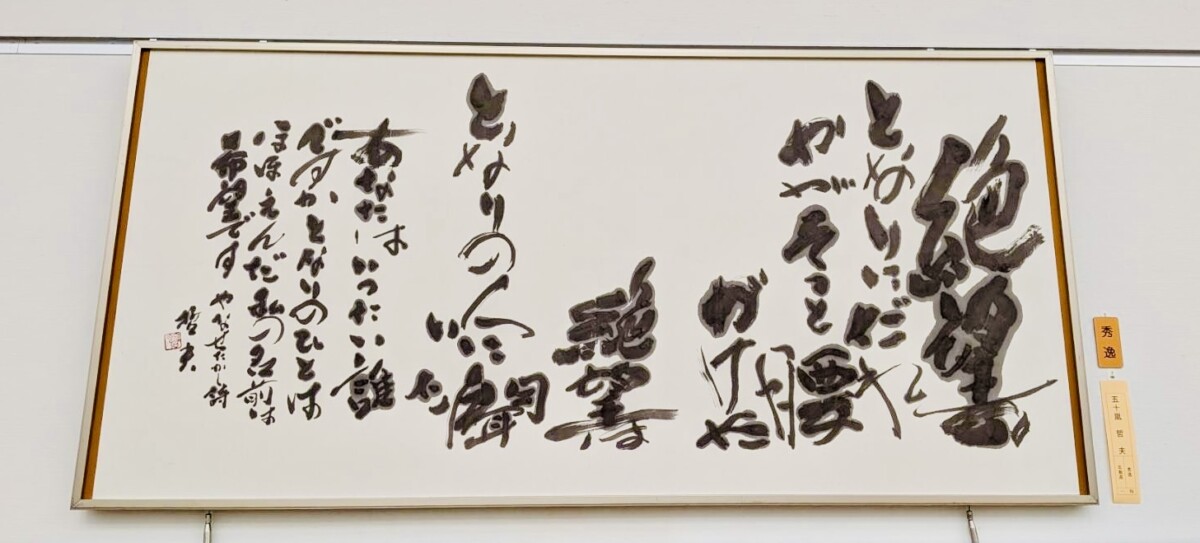 絶望の
となりにだれ
かがそっと腰
かけた
絶望は
となりの人に聞
いた
あなたはいったい誰
ですかとなりのひとは
ほほえんだ私の名前は
希望です やなせたかし詩
哲夫
秀逸
五十嵐 哲夫